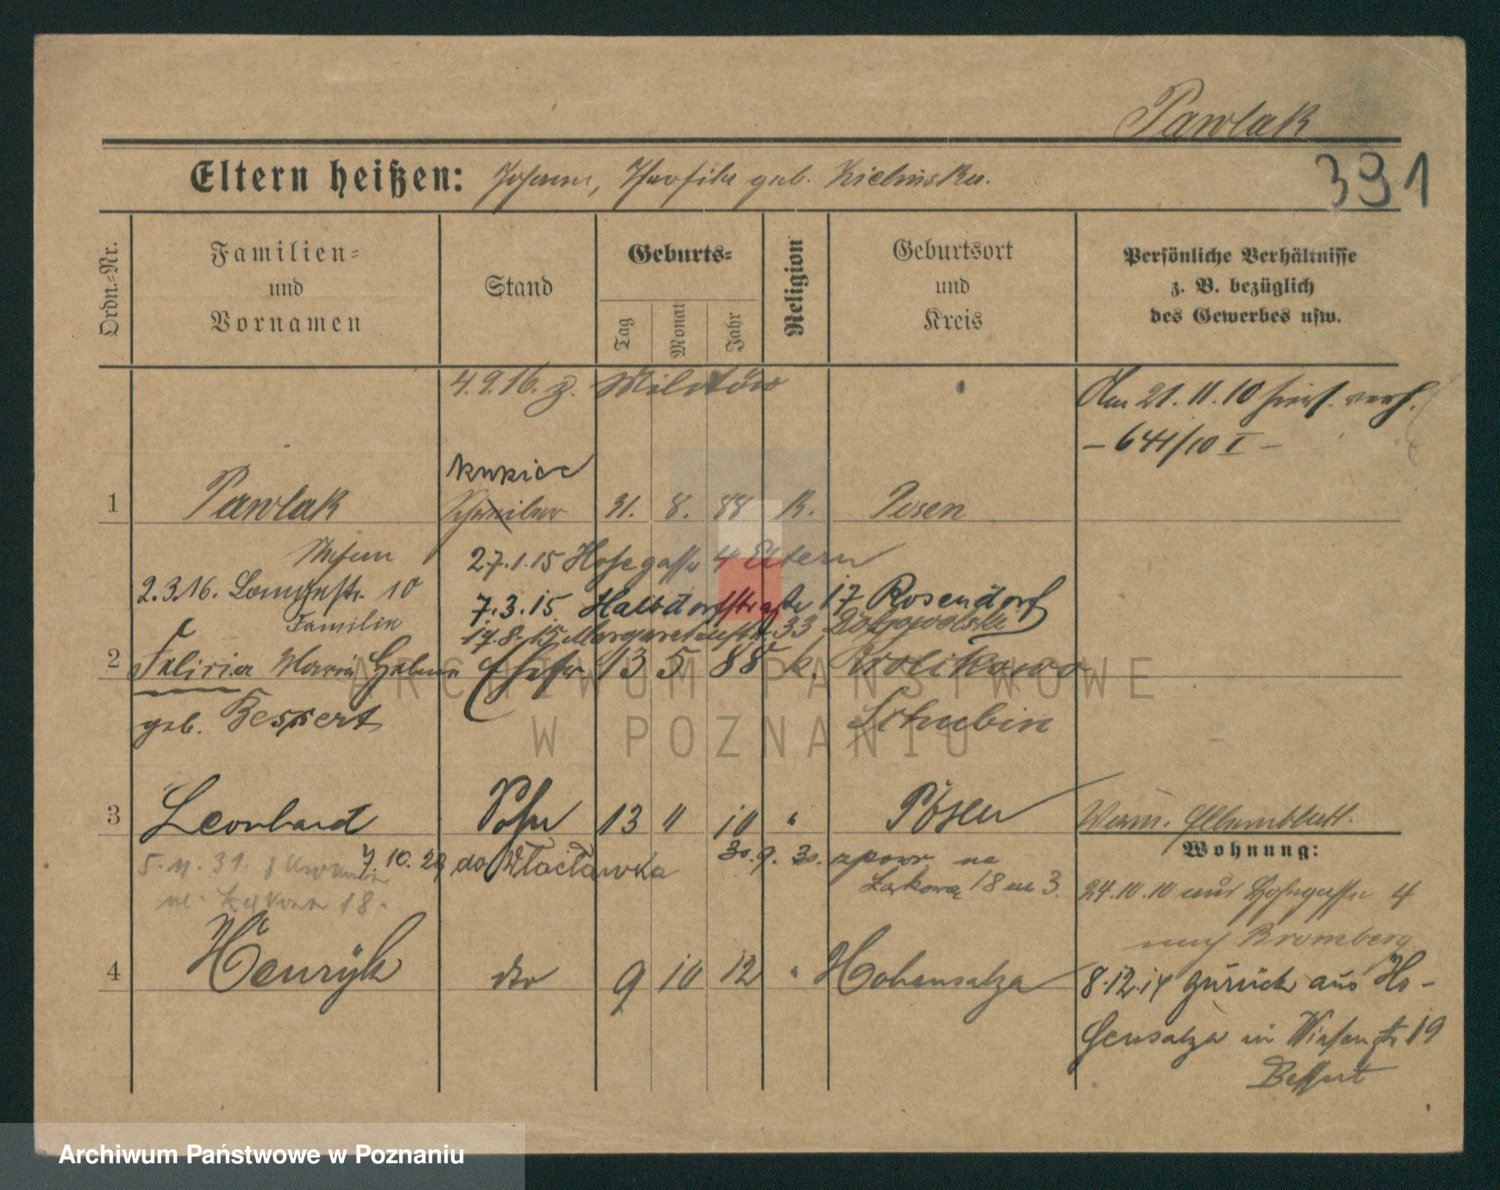 Pawlak
391
Eltern heißen: Johann, Theofila geb.
Ordn.-Nr.
Familien-
und
Vornamen
Stand
Geburts-
Tag
Monat
Jahr
Religion
Geburtsort
und
Kreis
Persönliche Verhältnisse
z. B. bezüglich
des Gewerbes usw.
4.9.16. z. Militär
Am 21.11.10 hier verh.
- 641/10 I -
kupiec
1 Pawlak Schreiber 31. 8. 88 K. Posen
Stefan
27.1.15 Hohegasse 4 Eltern
2.3.16. Langestr. 10
7.3.15 Halbdorfstraße 17 Rosendorf
Familie
17.8.15 Margaretenstr. 33
2 Felicia Maria Helena Ehefr. 13 5 88 k. Krolikowo
geb. Bessert
Schubin
3 Leonhard Sohn 13 " 10 " Posen
Wohnung:
5.11.31.
7.10.29 do Włocławka
30.9.30. z powr. na
Łąkową 18 m 3.
24.10.10 aus Hohegasse 4
18.
nach Bromberg
4 Henryk dto 9 10 12 " Hohensalza
8.12.14 zurück aus Ho-
hensalza in Wiesenstr 19
Bessert
ARCHIWUM PAŃSTWOWE
W POZNANIU
Archiwum Państwowe w Poznaniu